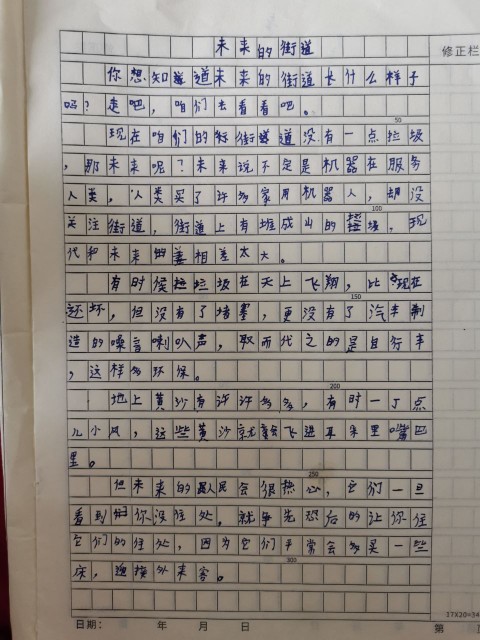 未来的街道
修正栏
你想知道道未来的街道长什么样子
吗？走吧，咱们去看看吧。
50
现在咱们的街街道道没有一点垃圾
，那未来呢？未来说不定是机器在服务
人类，人类买了许多家用机器人，却没
100
关注街道，街道上有堆成山的垃圾，现
代和未来差相差太大。
有时候垃垃圾在天上飞翔，比现在
150
还坏，但没有了堵塞，更没有了汽车制
造的噪音喇叭声，取而代之的是自行车
，这样多环保。
200
地上黄沙有许许多多，有时一丁点
儿小风，这些黄沙就会飞进耳朵里嘴巴
里。
250
但未来的人民会很热心，它们一旦
看到你没住处，就争先恐后的让你住
它们的住处，因为它们平常会多买一些
300
床，迎接外来客。
17X20=34
日期： 年 月 日 第